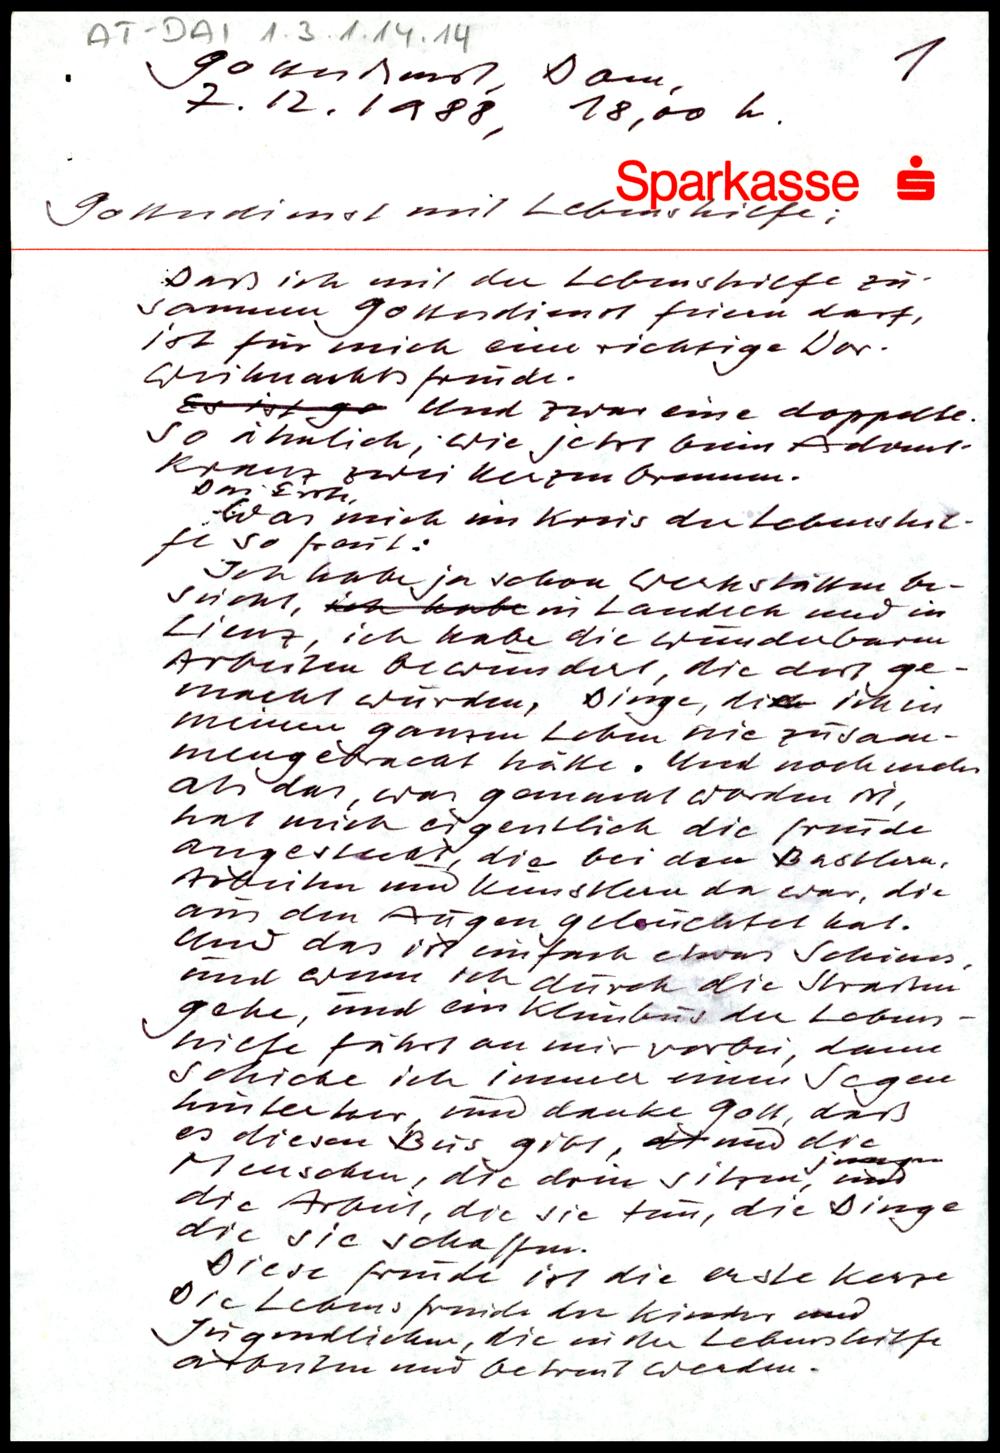 AT-DAI 1.3.1.14.14
1
Gottesdienst, Dom,
7.12.1988, 18,00 h.
Sparkasse
Gottesdienst mit Lebenshilfe:
Daß ich mit der Lebenshilfe zu-
sammen Gottesdienst feiern darf,
ist für mich eine richtige Vor-
weihnachtsfreude.
Es ist ge Und zwar eine doppelte.
So ähnlich, wie jetzt beim Advent-
kranz zwei Kerzen brennen.
Das Erste,
Was mich im Kreis der Lebenshil-
fe so freut:
Ich habe ja schon Werkstätten be-
sucht, ich habe in Landeck und in
Lienz, ich habe die wunderbaren
Arbeiten bewundert, die dort ge-
macht wurden, Dinge, die ich in
meinem ganzen Leben nie zusam-
mengebracht hätte. Und noch mehr
als das, was gemacht worden ist,
hat mich eigentlich die Freude
angesteckt, die bei den Bastlern,
Arbeitern und Künstlern da war, die
aus den Augen geleuchtet hat.
Und das ist einfach etwas Schönes,
und wenn ich durch die Straßen
gehe, und ein Kleinbus der Lebens-
hilfe fährt an mir vorbei, dann
schicke ich immer einen Segen
hinterher, und danke Gott, daß
es diesen Bus gibt, und die
jungen
Menschen, die drin sitzen, und
die Arbeit, die sie tun, die Dinge
die sie schaffen.
Diese Freude ist die erste Kerze
Die Lebensfreude der Kinder und
Jugendlichen, die in der Lebenshilfe
arbeiten und betreut werden.